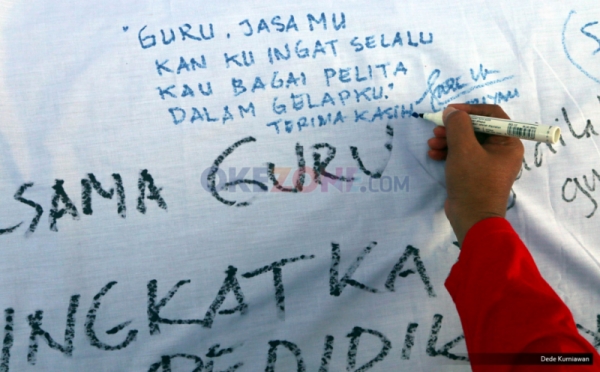 "GURU, JASA MU
KAN KU INGAT SELALU
KAU BAGAI PELITA
DALAM GELAPKU."
TERIMA KASIH
SAMA GURU
OKEZONE.COM
gu
INGKATKA
PENDIDIK
Dede Kurniawan